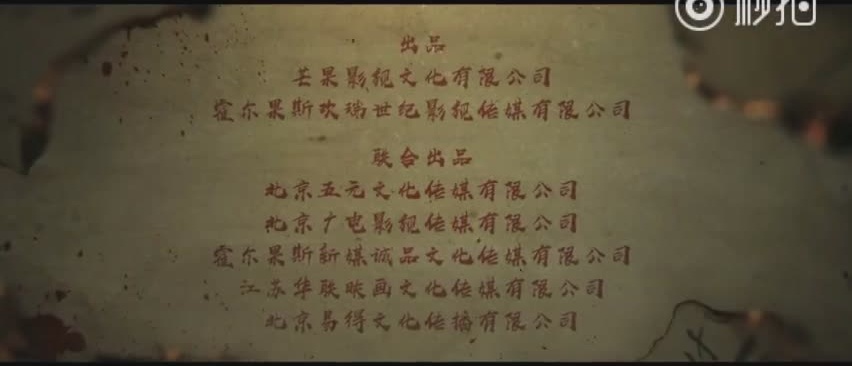 秒拍
出品
芒果影视文化有限公司
霍尔果斯欢瑞世纪影视传媒有限公司
联合出品
北京五元文化传媒有限公司
北京广电影视传媒有限公司
霍尔果斯新媒诚品文化传媒有限公司
江苏华联映画文化传媒有限公司
北京易得文化传播有限公司